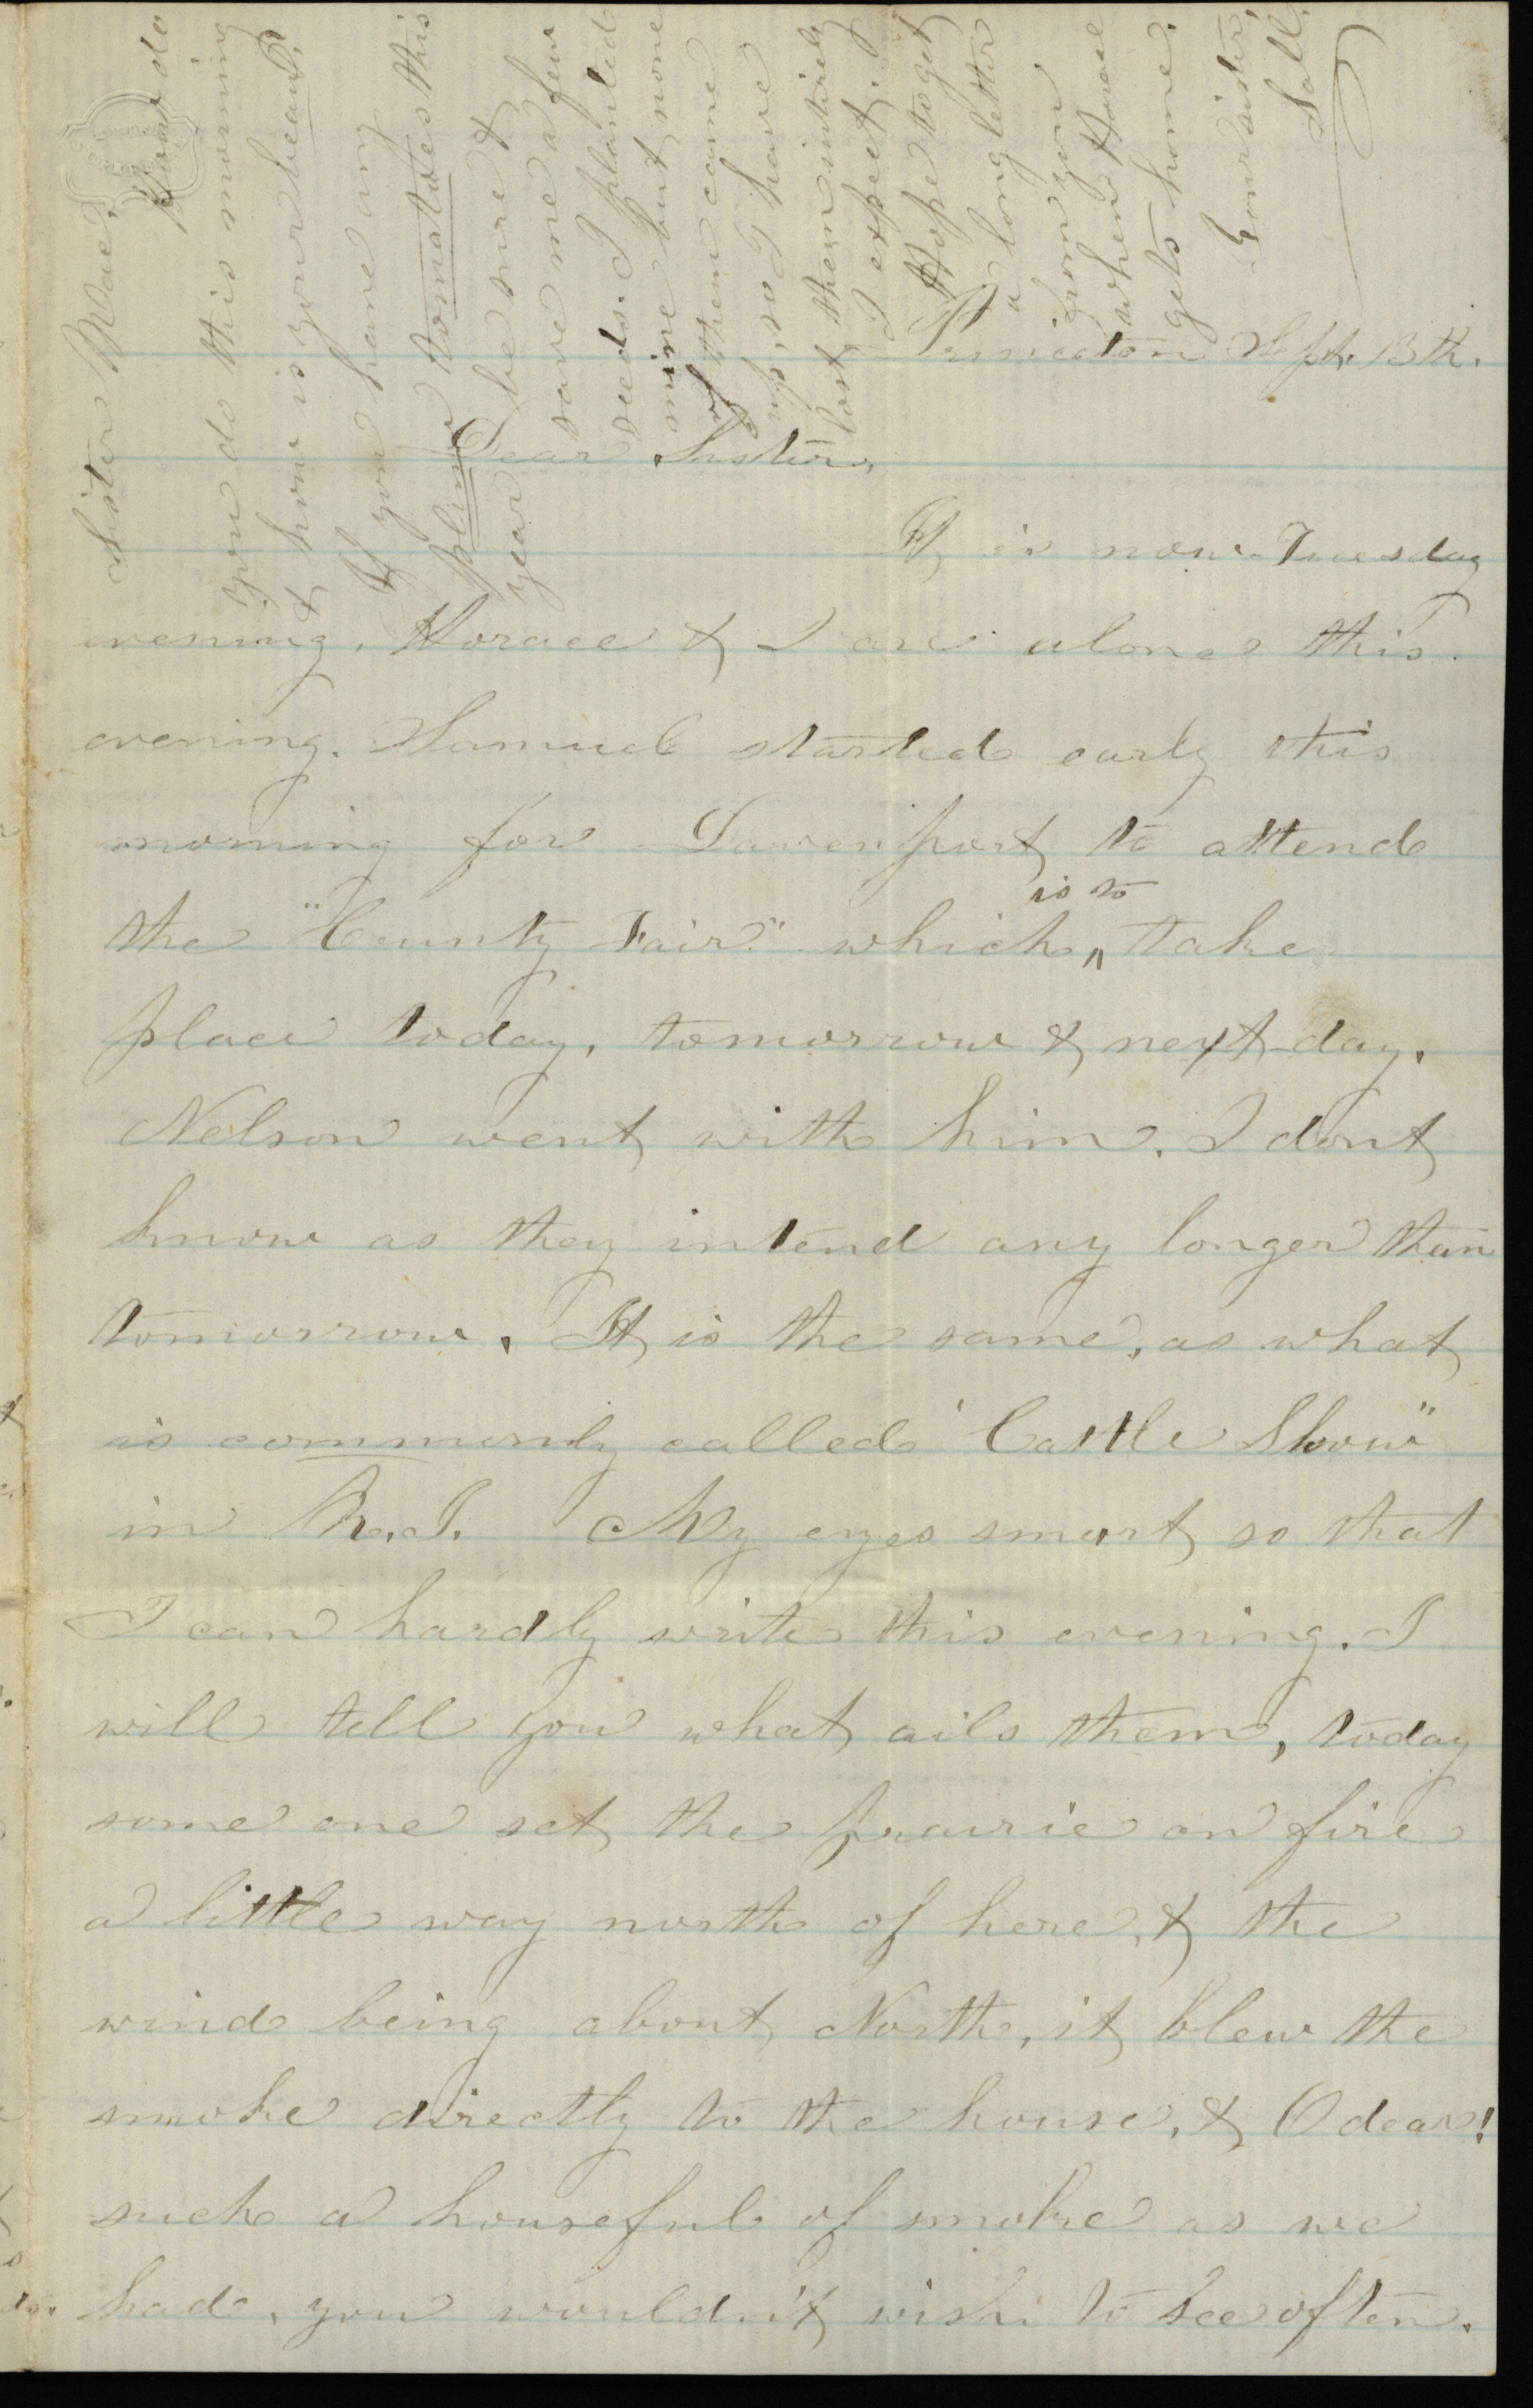 Princeton Sept. 13th.
Dear Sister,
It is now Tuesday
evening. Horace & I are alone this
evening. Samuel started early this
morning for Davenport to attend
the "County Fair" which is to take
place today, tomorrow & next day.
Nelson went with him. I dont
know as they intend any longer than
tomorrow. It is the same, as what
is commonly called "Cattle Show"
in R.I. My eyes smart so that
I can hardly write this evening. I
will tell you what ails them, today
some one set the prairie on fire
a little way north of here, & the
wind being about North, it blew the
smoke directly to the house, & O dear!
such a houseful of smoke as we
had, you wouldn't wish to see often.
Sister Mae,
How do
you do this morning
& how is your beau?
If you have any
tomatoes this
year be sure &
save me a few
seeds. I planted
mine but none
of them came
up, so I have
lost them entirely
I expect.
Hope to get
a long letter
from you
when Horace
gets home.
Your sister,
Sall.